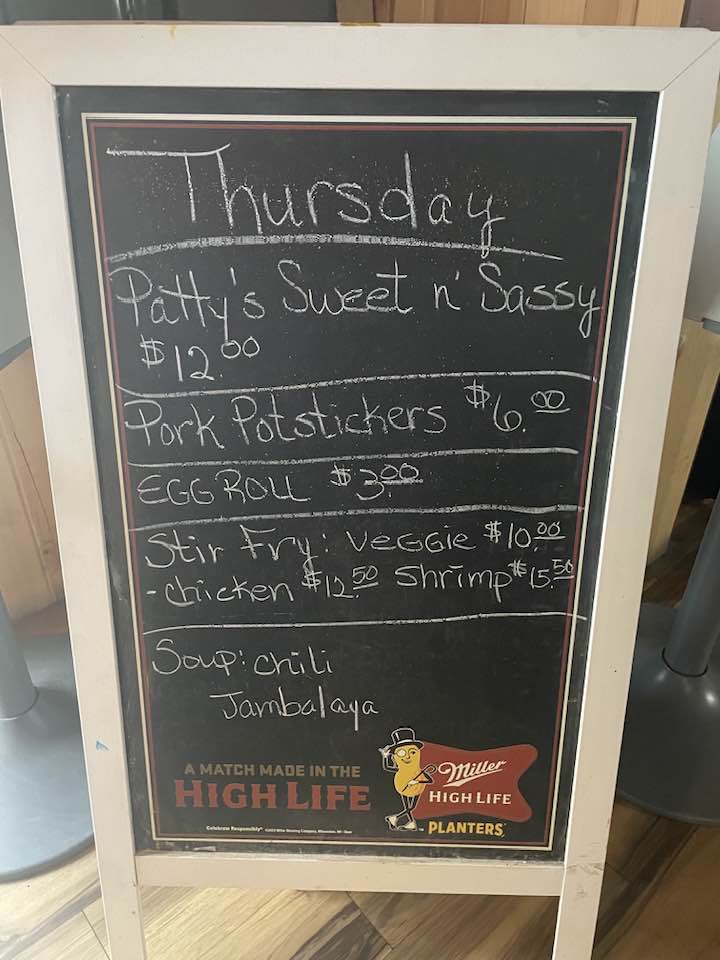 Thursday
Patty's Sweet n' Sassy
$12.00
Pork Potstickers $6.00
EGG ROLL $3.00
Stir Fry: VEGGIE $10.00
-chicken $12.50 Shrimp $15.50
Soup: chili
Jambalaya
A MATCH MADE IN THE
HIGH LIFE
Miller
HIGH LIFE
PLANTERS